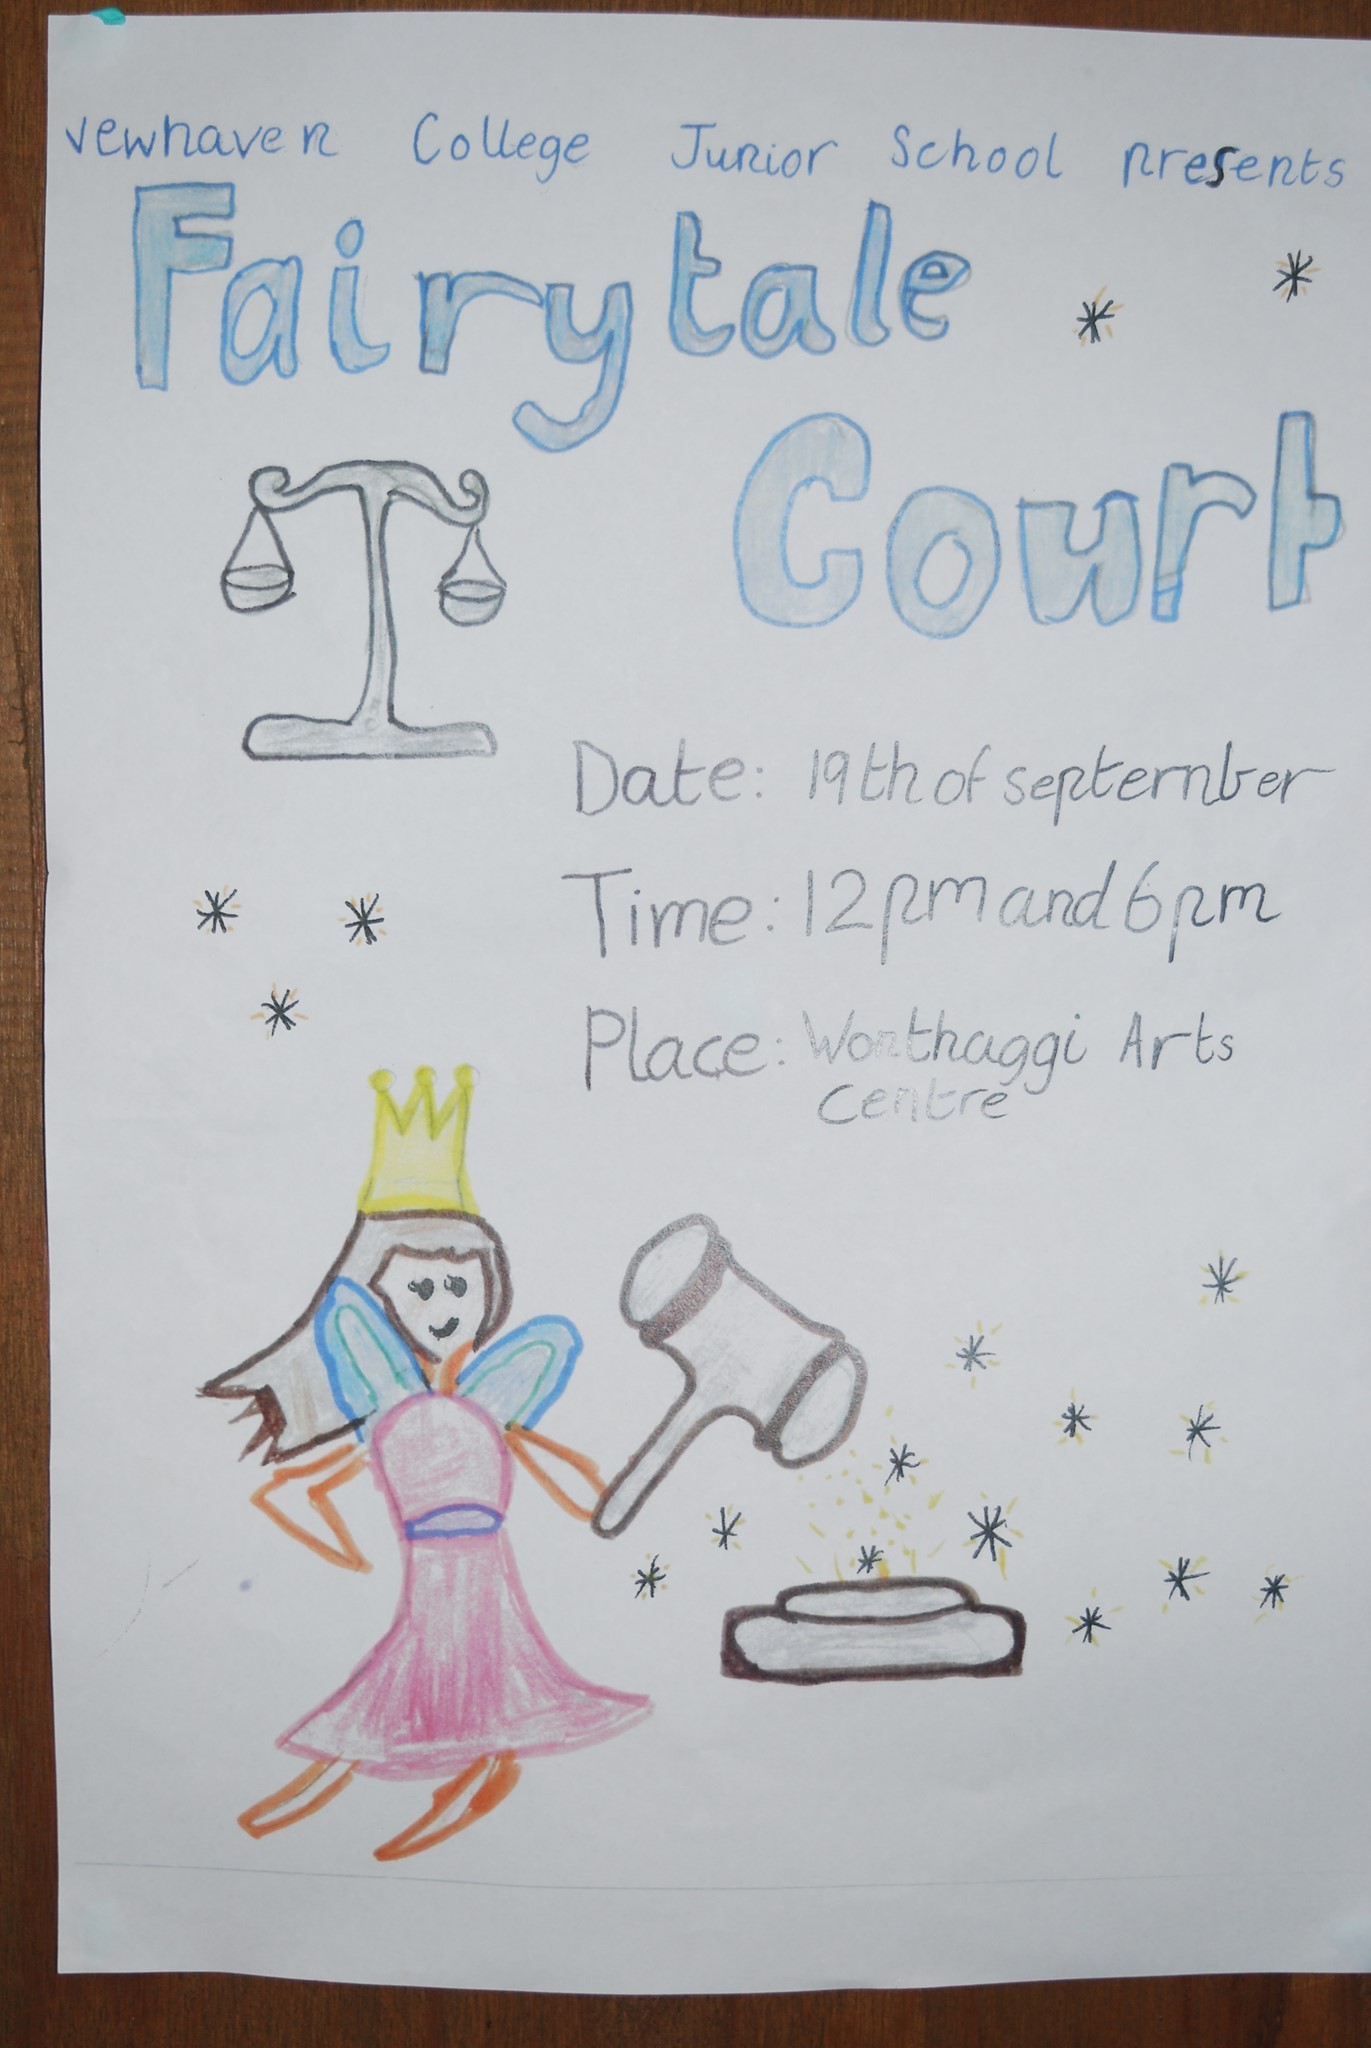 Newhaven College Junior School presents
Fairytale
Court
Date: 19th of september
Time: 12pm and 6pm
Place: Wonthaggi Arts
Centre